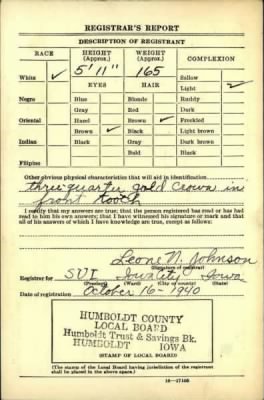 REGISTRAR'S REPORT
DESCRIPTION OF REGISTRANT
RACE HEIGHT (Approx.) WEIGHT (Approx.) COMPLEXION
5' 11" 165 Sallow
White ✓ EYES HAIR Light ✓
Negro Blue Blonde Ruddy
Gray Red Dark
Oriental Hazel Brown ✓ Freckled
Brown ✓ Black Light brown
Indian Black Gray Dark brown
Bald Black
Filipino
Other obvious physical characteristics that will aid in identification
three quarter gold crown in
front tooth
I certify that my answers are true; that the person registered has read or has had
read to him his own answers; that I have witnessed his signature or mark and that
all of his answers of which I have knowledge are true, except as follows:
Leone N. Johnson
(Signature of registrar)
Registrar for SUI Iowa City Iowa
(Precinct) (Ward) (City or county) (State)
Date of registration October 16-1940
HUMBOLDT COUNTY
LOCAL BOARD
Humboldt Trust & Savings Bk.
HUMBOLDT IOWA
(STAMP OF LOCAL BOARD)
(The stamp of the Local Board having jurisdiction of the registrant
shall be placed in the above space.)